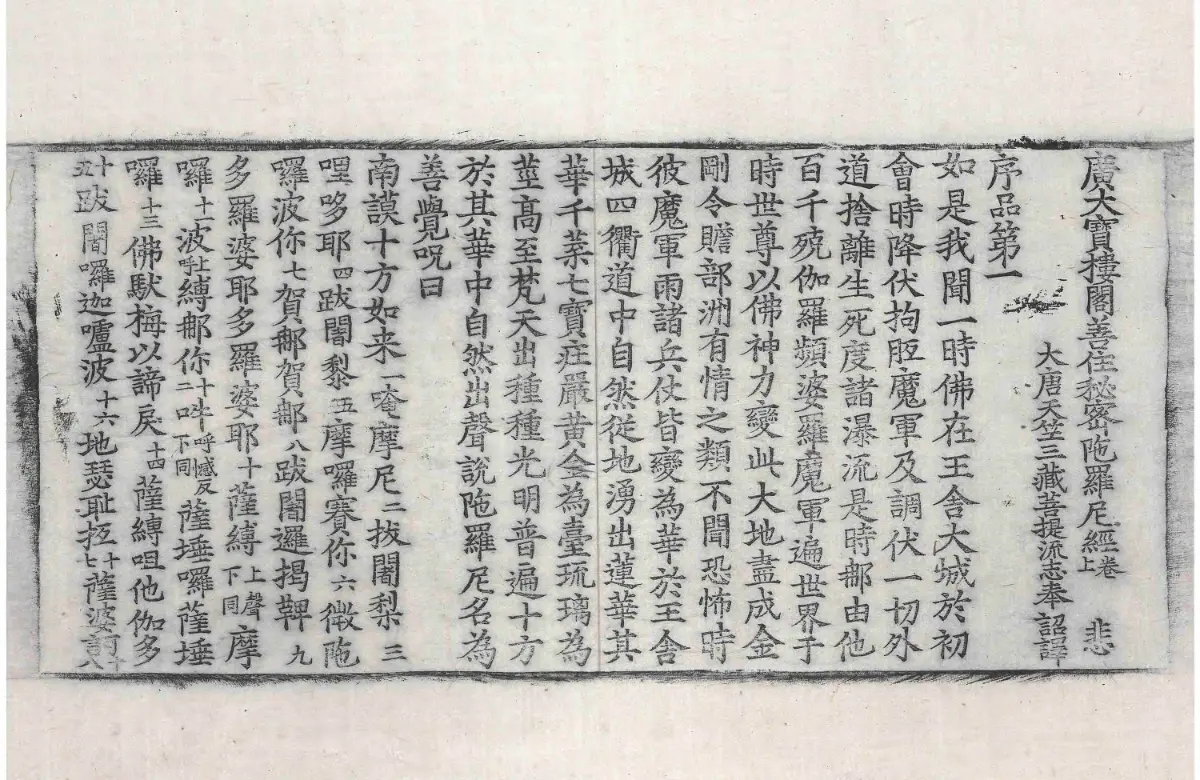 廣大寶樓閣善住秘密陁羅尼經卷上 悲
大唐天竺三藏菩提流志奉 詔譯
序品第一
如是我聞一時佛在王舍大城於初
會時降伏拘胝魔軍及調伏一切外
道捨離生死度諸瀑流是時鄅由他
百千殑伽羅頻婆羅魔軍遍世界于
時世尊以佛神力變此大地盡成金
剛令贍部洲有情之類不聞恐怖時
彼魔軍雨諸兵仗皆變為華於王舍
城四衢道中自然從地湧出蓮華其
華千葉七寶莊嚴黄金為臺琉璃為
莖髙至梵天出種種光明普遍十方
於其華中自然出聲說陁羅尼名為
善覺呪曰
南謨十方如来一唵摩尼二拔闍梨三
哩哆耶四跋闍黎五摩囉賽你六微陁
囉波你七賀鄅賀鄅八跋闍邏揭鞞九
多羅婆耶多羅婆耶十薩縛上聲下同摩
囉十一波上呼縛鄅你十二吽呼憾反口下同薩埵囉薩埵
囉十三佛馱梅以諦戾十四薩縛呾他伽多
十五跋闍囉迦嚧波十六地瑟耻抳十七薩婆訶十八